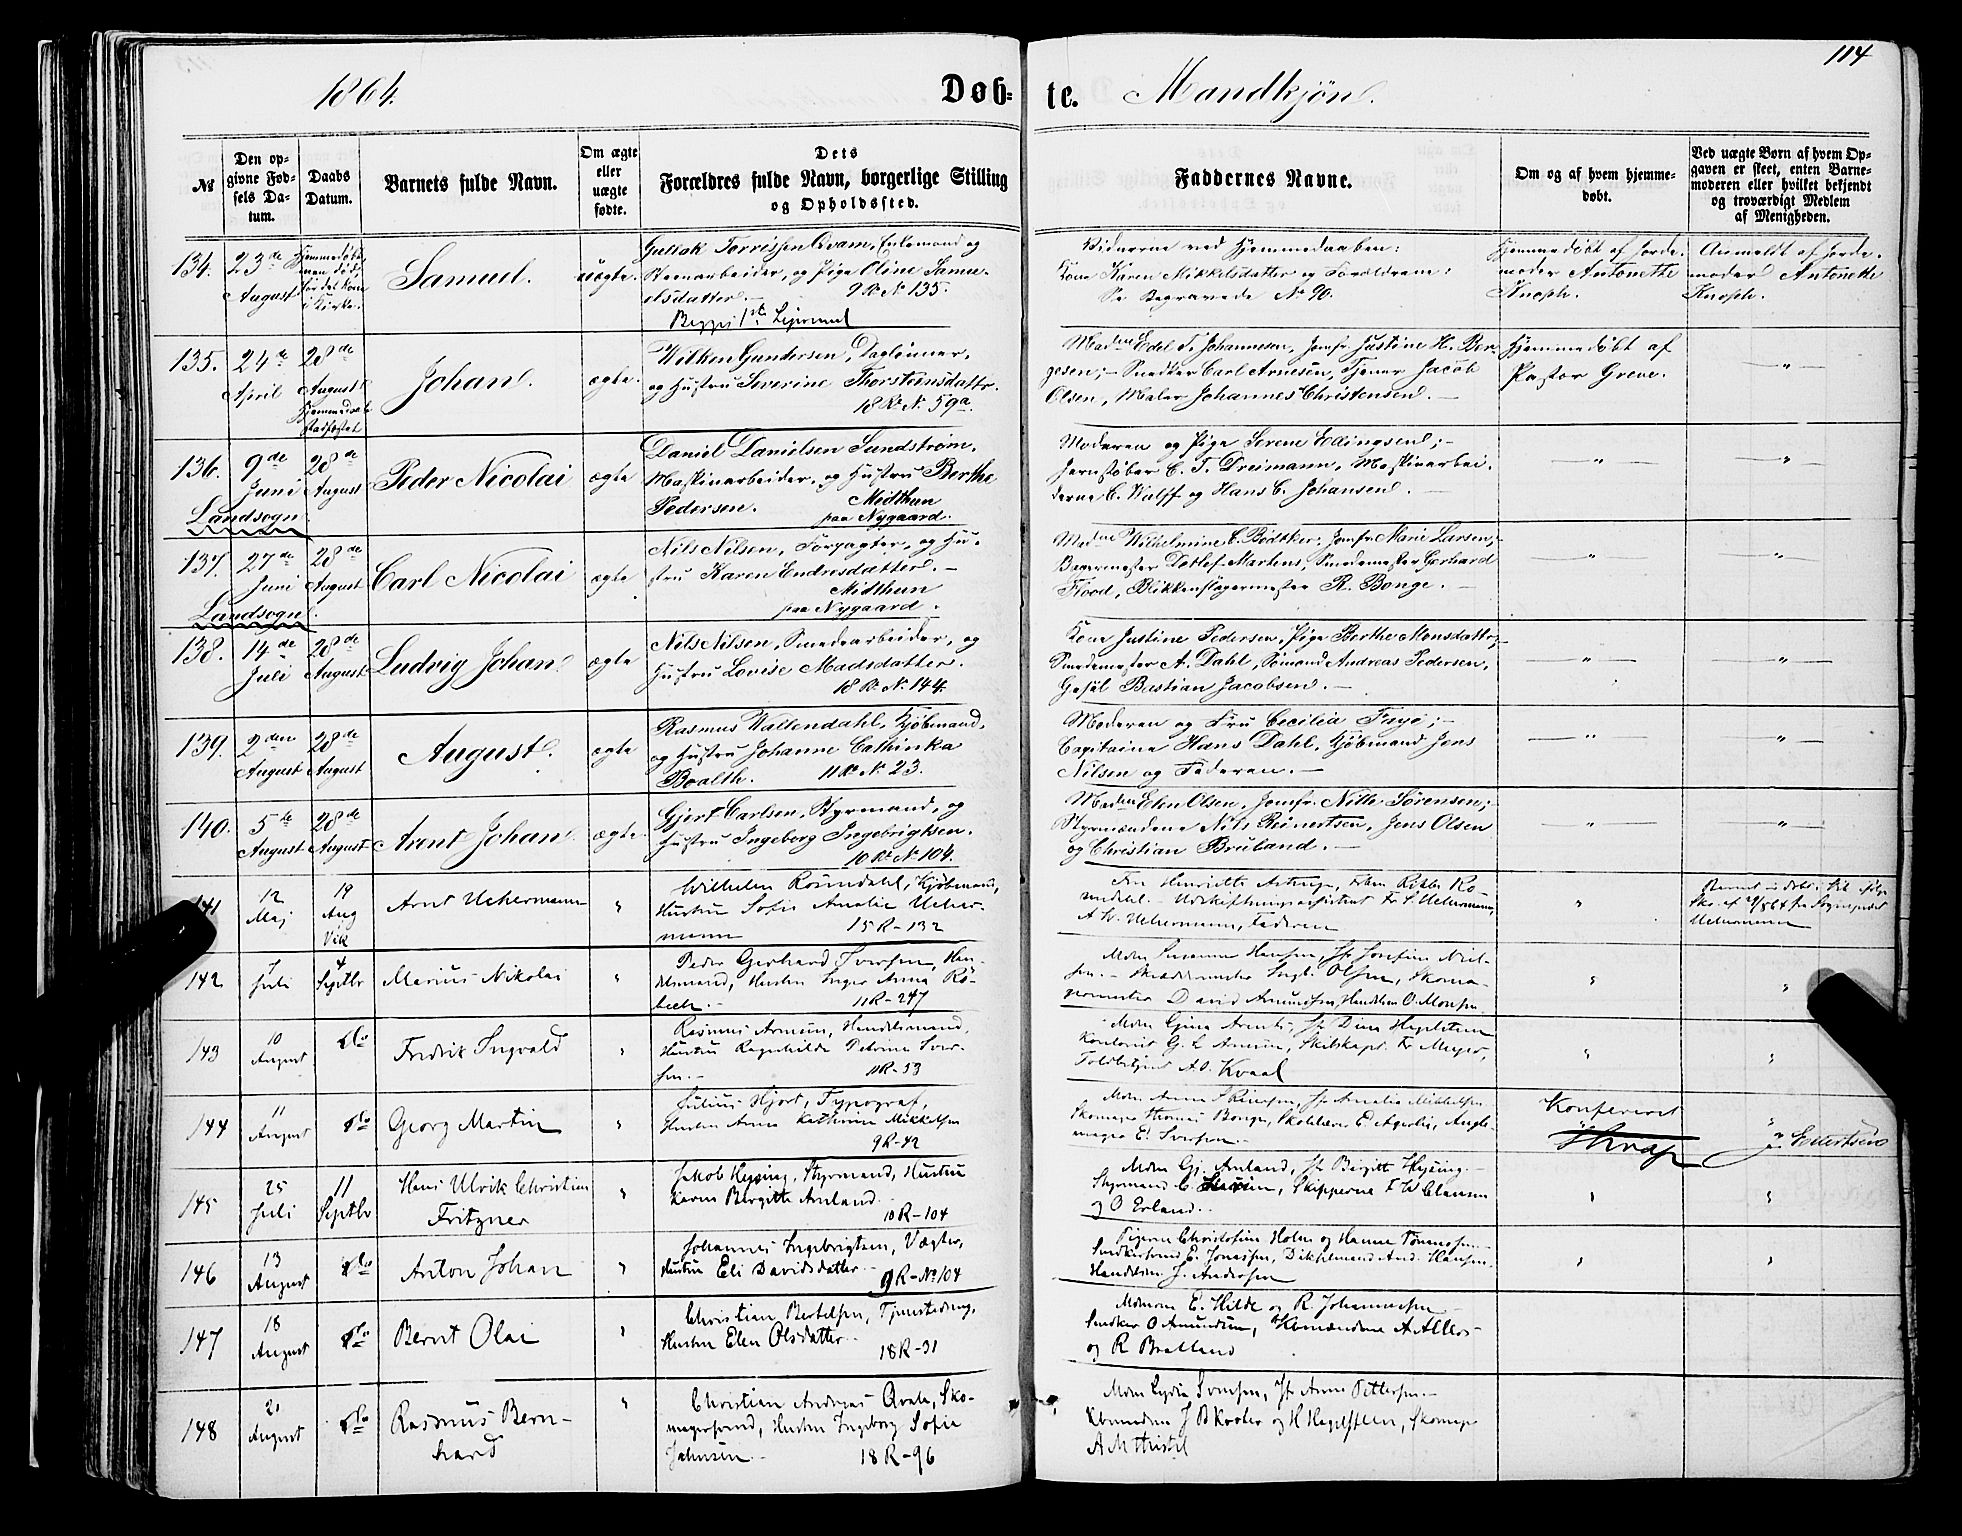 114
1864.
Døb=
te. Mandkjøn.
№
Den op=
givne Fød=
sels Da=
tum.
Daabs
Datum.
Barnets fulde Navn.
Om ægte
eller
uægte
fødte.
Dets
Forældres fulde Navn, borgerlige Stilling
og Opholdssted.
Faddernes Navne.
Om og af hvem hjemme=
døbt.
Ved uægte Børn af hvem Op=
gaven er skeet, enten Barne=
moderen eller hvilket bekjendt
og troværdigt Medlem
af Menigheden.
134.
23de
August
Hjemmedøbt
men død,
før det kom
i Kirke.
Samuel.
uægte.
Torrissen Qvam, Enkemand og
arbeider, og Pige Oline Samu-
elsdatter.
9 R. N. 135.
1ste Leiermaal
Vidnerne ved Hjemmedaaben:
Kone Karen Mikkelsdatter og Forældrene:
Se Begravede No 90.
Hjemmedøbt af Jorde-
moder Antonette
Knoph.
Anmeldt af Jorde-
moder Antonette
Knoph.
135.
24de
April
28de
August
Johan.
ægte.
Wilken Gundersen, Dagleiner,
og Hustru Severine Thorsteinsdatter.
18 R. N. 59a.
Madme Edel T. Johannesen, Jomfr. Justine H. Ber-
gesen; - Snedker Carl Arnesen, Tjener Jacob
Olsen, Maler Johannes Christensen. -
Hjemmedøbt af
Pastor Greve.
— " —
136.
9de
Juni
Landsogn.
28de
August
Peder Nicolai
ægte
Daniel Danielsen Sundstrøm,
Maskinarbeider, og Hustru Berthe
Pedersen.
Midthun
paa Nygaard.
Moderen og Pige Serene Edingsen; -
Jernstøber C. T. Dreimann, Maskinarbei-
derne C. Wulff og Hans C. Johansen. -
— " —
— " —
137.
27de
Juni
Landsogn.
28de
August
Carl Nicolai
ægte
Nils Nilsen, Forpagter, og Hu-
stru Karen Endresdatter. -
Midthun
paa Nygaard.
Madme Wilhelmine C. Bødtker, Jomfr. Marie Larsen; -
Bagermester Detlef Martens, Smedemester Gerhard
Flood, Blikkenslagermester R. Bonge. -
— " —
— " —
138.
14de
Juli
28de
August
Ludvig Johan
ægte
Nils Nilsen, Smedearbeider, og
Hustru Lovise Madsdatter.
18 R. N. 144.
Kone Justine Pedersen, Pige Berthe Monsdatter; -
Smedemester A. Dahl, Sømand Andreas Pedersen,
Gesel Bastian Jacobsen. -
— " —
— " —
139.
2den
August
28de
August
August.
ægte
Rasmus Wallendahl, Kjøbmand,
og Hustru Johanne Cathinka
Boalth. 11 R. N. 23.
Moderen og Fru Cecilia Frye; -
Capitaine Hans Dahl, Kjøbmand Jens
Nilsen og Faderen. -
— " —
— " —
140.
5te
August
28de
August
Arent Johan
ægte.
Gjert Carlsen, Styrmand, og
Hustru Ingeborg Ingebrigtsen.
10 R. N. 104.
Madme Elen Olsen, Jomfr. Nille Sørensen;
Styrmændene Nils Reinertsen, Jens Olsen
og Christian Brüland. -
— " —
— " —
141
12
Maj
19
Aug
Vik
Arnt Uchermann
"
Wilhelm Rosendahl, Kjøbmand,
Hustru Sofie Amalie Ucher-
mann 15 R - 132
Fru Henriette Astrup,
Uchermann,
Uchermann, Faderen
"
Uchermann
142
7
Juli
4
Septbr
Marius Nikolai
"
Peder Gerhard Iversen, Han-
delsmand, Hustru Inger Anna Rø-
beck. - 11R-247
Mdm Susanne Hansen, Jf Josefine Niel-
sen. - Skræddermester Ingb. Olsen, Skoma-
germester David Amundsen, Handlsm O. Monsen
"
"
143
10
August
do
Fredrik Ingvald
"
Rasmus Arnesen, Handelsmand,
Hustru Ragnhilde Petrine Iver-
sen. - 11R-53
Mdm Gjina Arentz,
Kontorist G. L. Arnesen, Skibskapt. Fr Meyer,
Toldbetjent A O. Kvaal
"
"
144
11
August
do
Georg Martin
"
Julius Hjort, Typograf,
Hustru Anna Kathrine Mikkelsen
9R-42
Mdm Anna Iversen, Jf Amalie Mikkelsen
Skomager Thomas Bonge,
mager E. Iversen. -
Konfereret
"
"
J. Edertsen
145
25
Juli
11
Septbr
Hans Ulrik Christian
Fritzner
"
Jakob Heysing, Styrmand, Hustru
Karen Birgitte Amland.
10R-104
Mdm Gj. Amland, Jf Birgitte Heysing. -
Styrmand C. Skipperne F W Clausen
og O Erland. -
"
"
146
13
August
do
Anton Johan
"
Johannes Ingebrigtsen, Vægter,
Hustru Eli Davidsdatter. -
9R-No 104
Pigerne Christofine Holm og Hanne Tønnesen. -
Snedkersvend E. Jonassen, And. Hansen,
Handelsm J. Andersen
"
"
147
18
August
do
Bernt Olai
"
Christian Bertelsen, Tjenstedreng,
Hustru Elen Olsdatter. -
18R-31
Mdmrne E. Hilde og R. Johannessen -
Snedker O Amundsen,
og R Bratland
148
21
August
do
Rasmus Bern-
hard
"
Christian Andreas Qvale, Sko-
magersvend, Hustru Ingeborg Sofie
Johnsen. - 18R-96
Mdm Lydia Svensen, Jf Anne Pettersen. -
J B Koster og H Hagelsteen, Skomager
A M Thistel